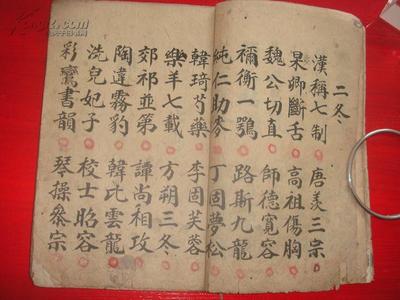 二冬
漢稱七制 唐羨三宗
杲卿斷舌 高祖傷胸
魏公切直 師德寬容
禰衡一鶚 路斯九龍
純仁助麥 丁固夢松
韓琦芍藥 李固芙蓉
樂羊七載 方朔三冬
郊祁並第 譚尚相攻
陶違霧豹 韓比雲龍
洗兒妃子 校士昭容
彩鸞書韻 琴操叅宗